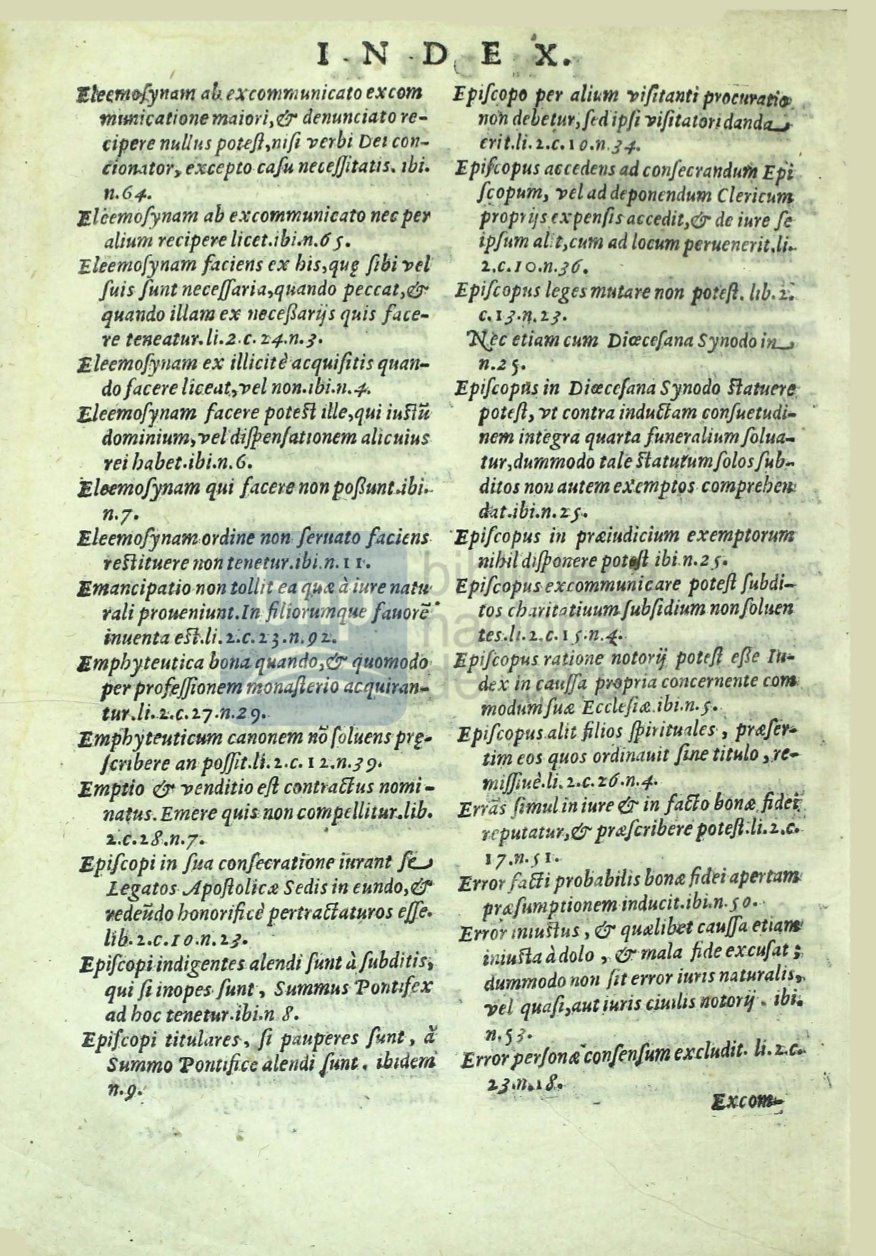 INDEX.
Eleemoſynam ab excommunicato excom
municatione maiori,& denunciato re-
cipere nullus poteſt,niſi verbi Dei con-
cionator, excepto caſu neceſſitatis. ibi.
n.64.
Eleemoſynam ab excommunicato nec per
alium recipere licet.ibi.n.65.
Eleemoſynam faciens ex his,quę ſibi vel
ſuis ſunt neceſſaria,quando peccat,&
quando illam ex neceßarijs quis face-
re teneatur.li.2.c.24.n.3.
Eleemoſynam ex illicitè acquiſitis quan-
do facere liceat,vel non.ibi.n.4.
Eleemoſynam facere poteſt ille,qui iuſtũ
dominium,vel diſpenſationem alicuius
rei habet.ibi.n.6.
Eleemoſynam qui facere non poßunt.ibi.
n.7.
Eleemoſynam ordine non ſeruato faciens
reſtituere non tenetur.ibi.n.11.
Emancipatio non tollit ea quæ à iure natu
rali proueniunt.In filiorumque fauorẽ
inuenta eſt.li.2.c.23.n.92.
Emphyteutica bona quando,& quomodo
per profeſſionem monaſterio acquiran-
tur.li.2.c.27.n.29.
Emphyteuticum canonem nõ ſoluens prę-
ſcribere an poſſit.li.2.c.12.n.39.
Emptio & venditio eſt contractus nomi-
natus. Emere quis non compellitur.lib.
2.c.28.n.7.
Epiſcopi in ſua conſecratione iurant ſe
Legatos Apoſtolicæ Sedis in eundo,&
redeũdo honorificè pertractaturos eſſe.
lib.2.c.10.n.23.
Epiſcopi indigentes alendi ſunt à ſubditis,
qui ſi inopes ſunt, Summus Pontifex
ad hoc tenetur.ibi.n 8.
Epiſcopi titulares, ſi pauperes ſunt, à
Summo Pontifice alendi ſunt. ibidem
n.9.
Epiſcopo per alium viſitanti procuratio
non debetur,ſed ipſi viſitatori danda
erit.li.2.c.10.n.34.
Epiſcopus accedens ad conſecrandum Epi
ſcopum, vel ad deponendum Clericum
proprijs expenſis accedit,& de iure ſe
ipſum alit,cum ad locum peruenerit.li.
2.c.10.n.36.
Epiſcopus leges mutare non poteſt. lib.2.
c.13.n.23.
Nec etiam cum Diœceſana Synodo in
n.25.
Epiſcopus in Diœceſana Synodo ſtatuere
poteſt, vt contra inductam conſuetudi-
nem integra quarta funeralium ſolua-
tur,dummodo tale ſtatutum ſolos ſub-
ditos non autem exemptos comprehen
dat.ibi.n.25.
Epiſcopus in præiudicium exemptorum
nihil diſponere poteſt ibi.n.25.
Epiſcopus excommunicare poteſt ſubdi-
tos charitatiuum ſubſidium non ſoluen
tes.li.2.c.15.n.4.
Epiſcopus ratione notorij poteſt eſſe Iu-
dex in cauſſa propria concernente com
modum ſuæ Eccleſiæ.ibi.n.5.
Epiſcopus alit filios ſpirituales, præſer-
tim eos quos ordinauit ſine titulo, re-
miſſiuè.li.2.c.26.n.4.
Errãs ſimul in iure & in facto bonæ fidei
reputatur,& præſcribere poteſt.li.2.c.
17.n.51.
Error facti probabilis bonæ fidei apertam
præſumptionem inducit.ibi.n.50.
Error iniuſtus, & quælibet cauſſa etiam
iniuſta à dolo, & mala fide excuſat;
dummodo non ſit error iuris naturalis,
vel quaſi,aut iuris ciuilis notorij. ibi.
n.53.
Error perſonæ conſenſum excludit. li.2.c.
23.n.18.
Excom-